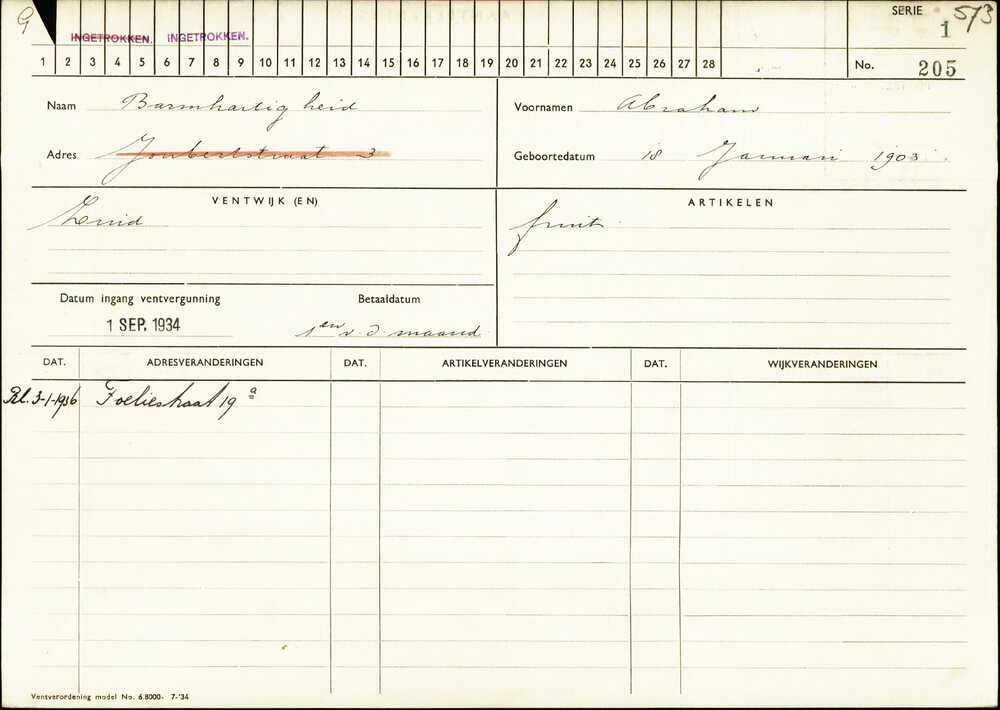 G SERIE 573
INGETROKKEN. INGETROKKEN. 1
1 2 3 4 5 6 7 8 9 10 11 12 13 14 15 16 17 18 19 20 21 22 23 24 25 26 27 28 No. 205
Naam Barmhartigheid Voornamen Abraham
Adres Joubertstraat 3 Geboortedatum 18 Januari 1903
VENTWIJK (EN) ARTIKELEN
Zuid fruit
Datum ingang ventvergunning Betaaldatum
1 SEP. 1934 1en v. d. maand
DAT. ADRESVERANDERINGEN DAT. ARTIKELVERANDERINGEN DAT. WIJKVERANDERINGEN
3-1-1936 Foeliestraat 19 a
Ventverordening model No. 6.8000- 7-'34